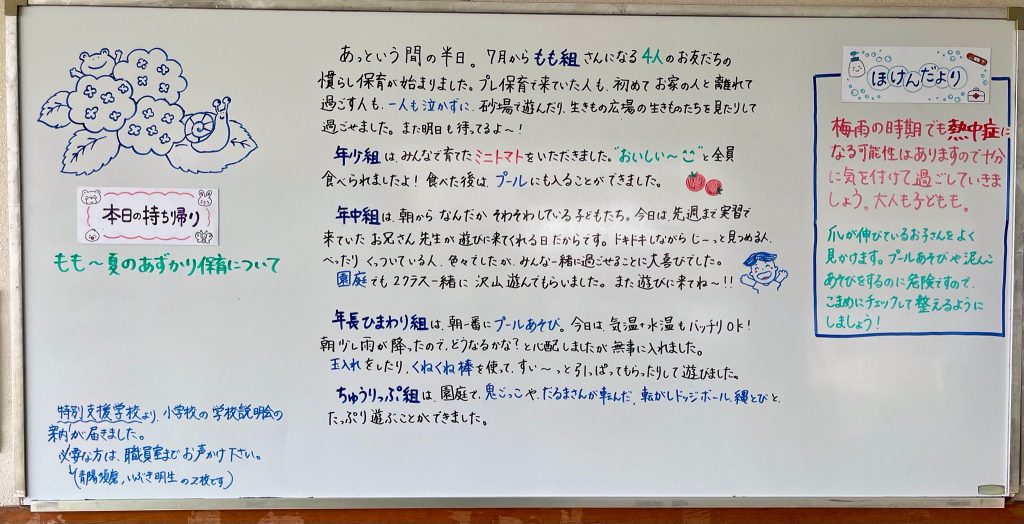 本日の持ち帰り
もも～夏のあずかり保育について
特別支援学校より、小学校の学校説明会の
案内が届きました。
必要な方は、職員室までお声かけ下さい。
(青陽須磨、いぶき明生の2校です)
あっという間の半日。7月からもも組さんになる4人のお友だちの
慣らし保育が始まりました。プレ保育で来ていた人も、初めてお家の人と離れて
過ごす人も、一人も泣かずに、砂場で遊んだり、生きもの広場の生きものたちを見たりして
過ごせました。また明日も待ってるよ～!
年少組は、みんなで育てたミニトマトをいただきました。"おいしい～"と全員
食べられましたよ!食べた後は、プールにも入ることができました。
年中組は、朝からなんだかそわそわしている子どもたち。今日は、先週まで実習で
来ていたお兄さん先生が遊びに来てくれる日だからです。ドキドキしながらじーっと見つめる人、
べったりくっついている人、色々でしたが、みんな一緒に過ごせることに大喜びでした。
園庭でも2クラス一緒に沢山遊んでもらいました。また遊びに来てね～!!
年長ひまわり組は、朝一番にプールあそび。今日は、気温+水温もバッチリOK!
朝少し雨が降ったので、どうなるかな?と心配しましたが無事に入れました。
玉入れをしたり、くねくね棒を使って、すぃ～っと引っぱってもらったりして遊びました。
ちゅうりっぷ組は、園庭で、鬼ごっこや、だるまさんが転んだ、転がしドッジボール、縄とびと、
たっぷり遊ぶことができました。
ほけんだより
梅雨の時期でも熱中症に
なる可能性はありますので十分
に気を付けて過ごしていきま
しょう。大人も子どもも。
爪が伸びているお子さんをよく
見かけます。プールあそびや泥んこ
あそびをするのに危険ですので、
こまめにチェックして整えるように
しましょう!